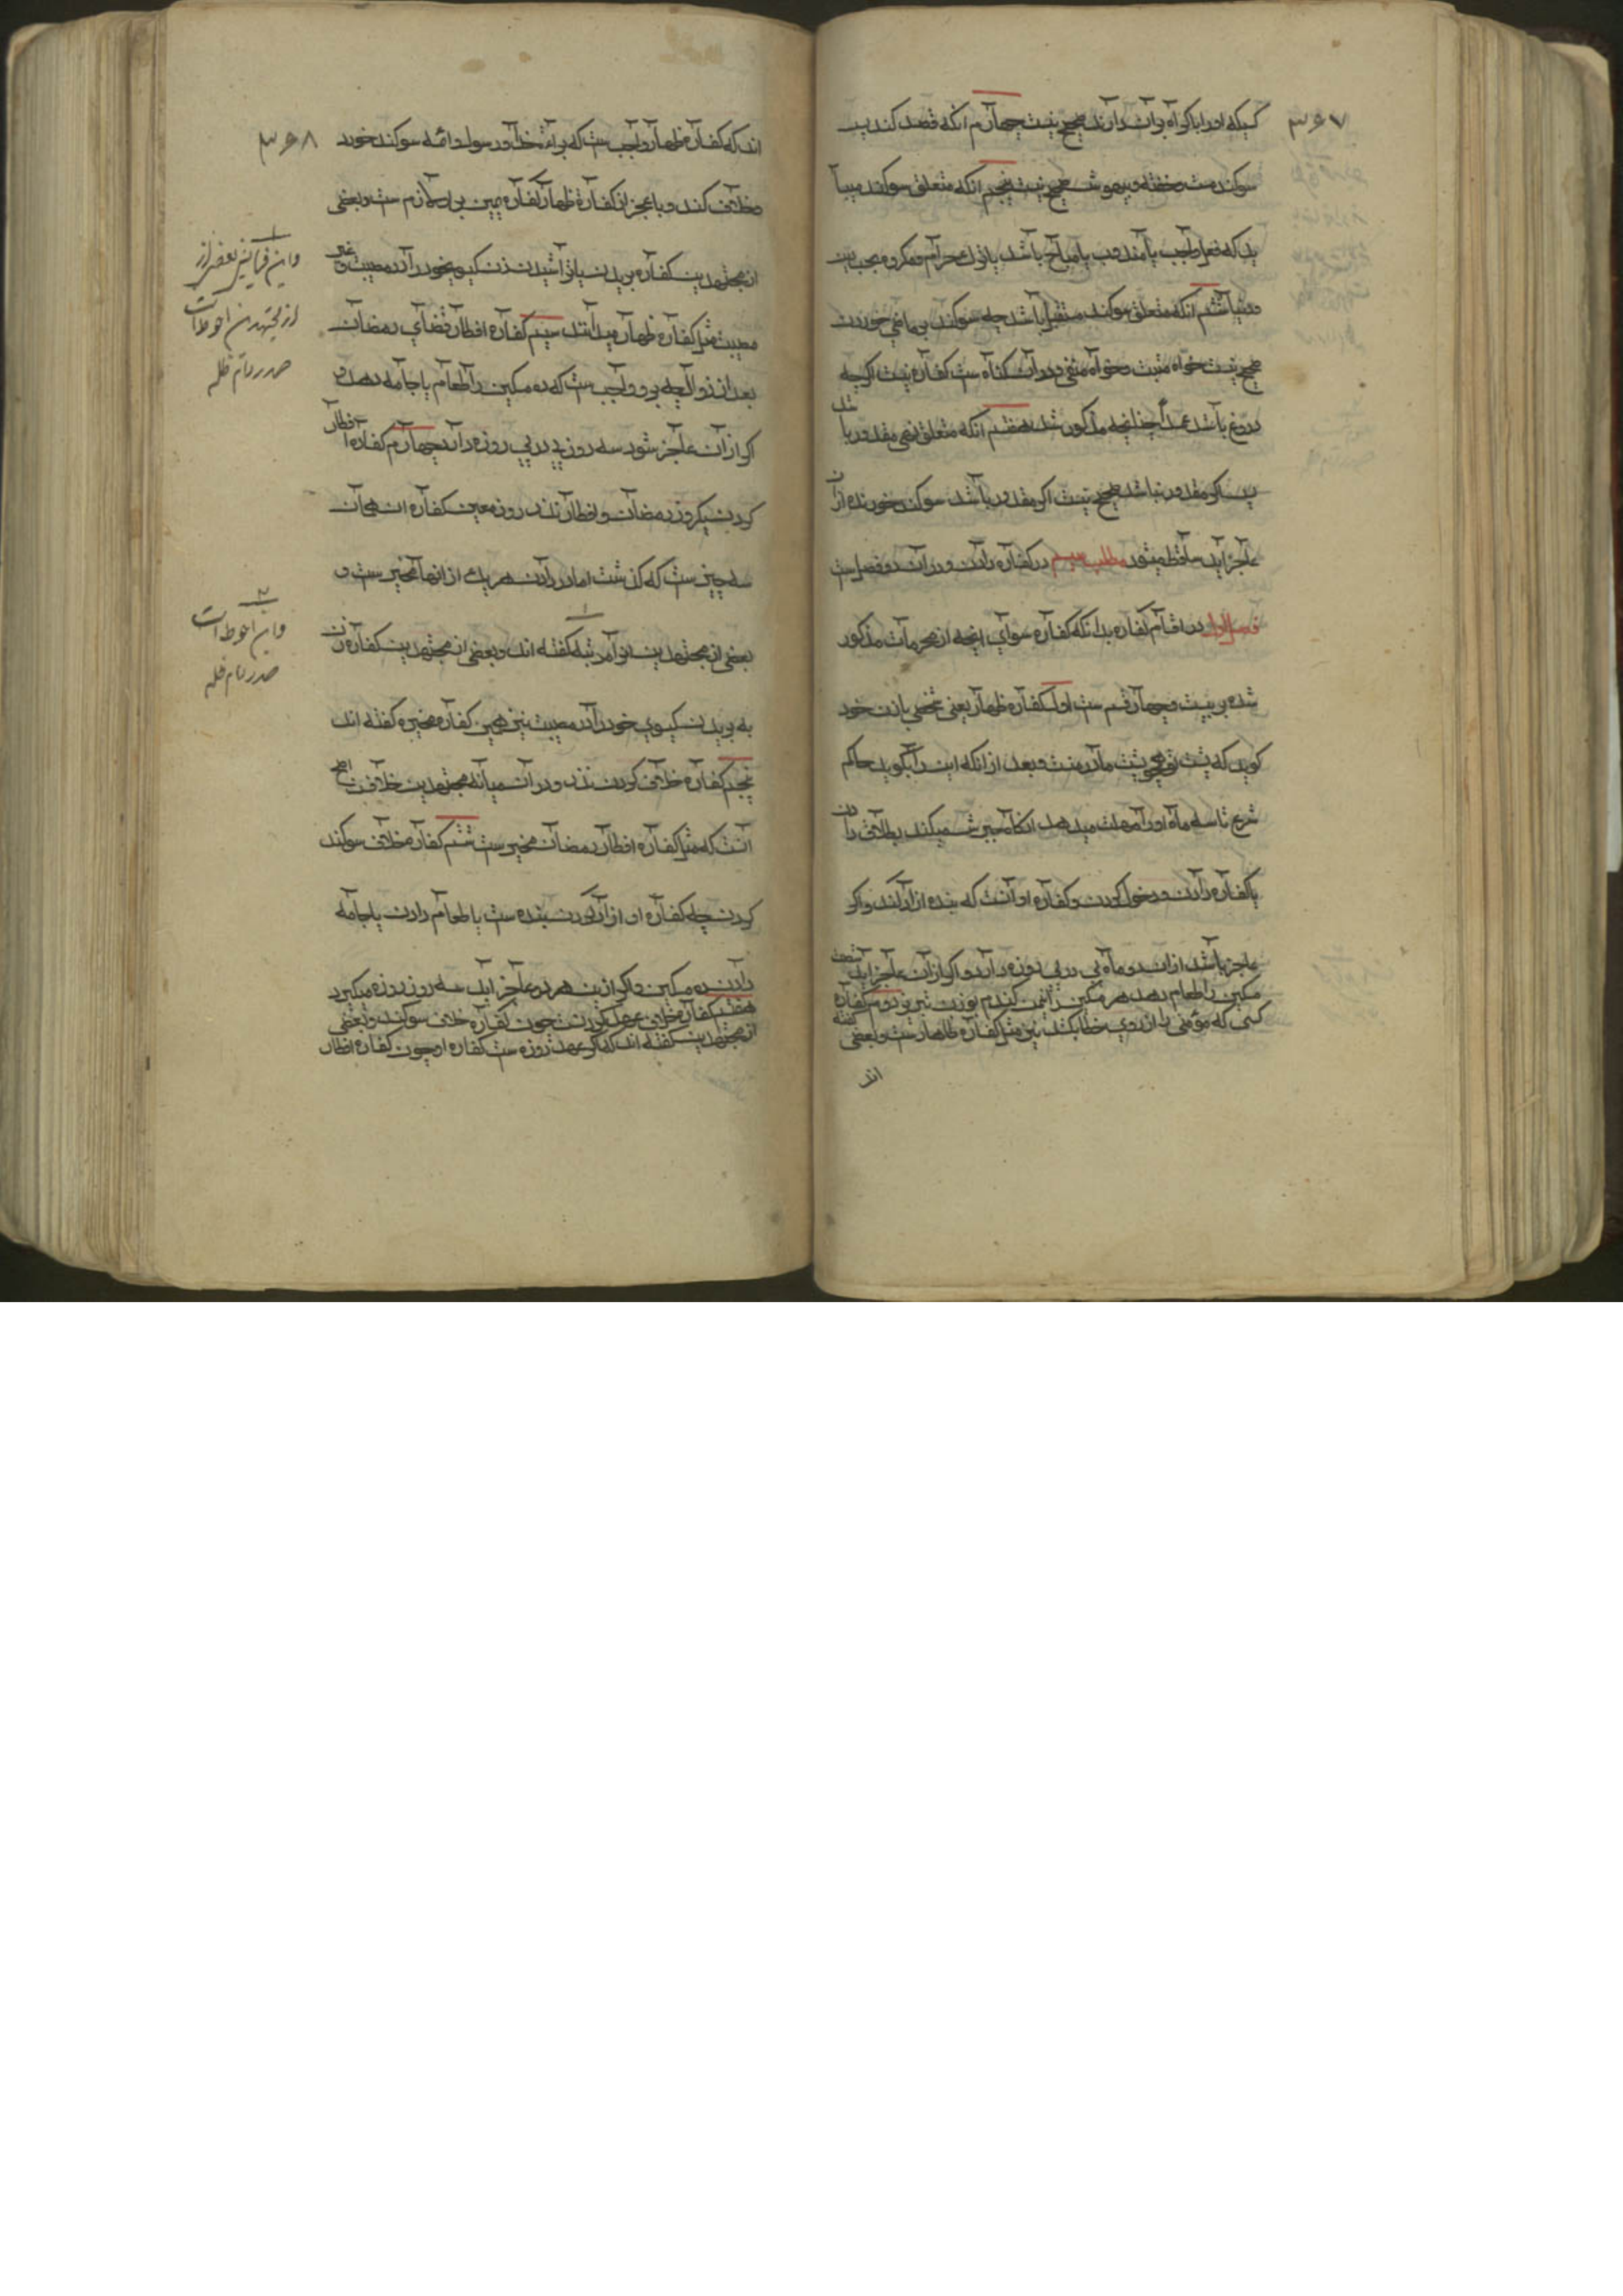 ۳۶۷
کسیکه او را باکراه بران دارند صحیح نیست چهارم انکه قصد کند پس
سوکند مست و خفته و بیهوش صحیح نیست پنجم انکه متعلق سوکند میباـ
ید که فعل واجب یا مندوب یا مباح باشد یا ترك حرام و مکروه بحسب دین
و دنیا ششم انکه متعلق سوکند مستقبل باشد چه سوکند بر ماضی خوردن
صحیح نیست خواه مثبت و خواه منفی و در ان کناه ست کفاره نیست اکرچه
دروغ باشد عمداً چنانچه مذکور شد هفتم انکه متعلق نفی مقدور باشد
پس اکر مقدور نباشد صحیح نیست اکر مقدور باشد سوکند خورنده ازان
عاجز اید ساقط میشود مطلب سیم در کفاره دادن و در ان دو فصل ست
فصل اول در اقسام کفاره بدانکه کفاره سوای انچه از محرمات مذکور
شده بر بیست و چهار قسم ست اول کفاره ظهار یعنی شخصی با زن خود
کوید که پشت تو همچو پشت مادر منست و بعد از انکه این را بکوید حاکم
شرع تا سه ماه او را مهلت میدهد انکاه جبرش میکند بطلاق دادن
یا کفاره دادن و دخول کردن و کفاره او انست که بنده ازاد کند و اکر
عاجز باشد ازان دو ماه پی در پی روزه دارد و اکر ازان عاجز اید شصت
مسکین را طعام دهد هر مسکین را نیمن کندم بوزن تبریز دوم کفاره
کسی که مؤمنی را از روی خطا بکشد نیز مثل کفاره ظهار ست و بعضی کفته
اند
۳۶۸
اند که کفاره ظهار واجب ست که براءت خدا و رسول و ائمه سوکند خورد
و خلاف کند و با عجز از کفاره ظهار کفاره یمین بر او لازم ست و بعضی
از مجتهدین کفاره بریدن یا تراشیدن زن کیسوی خود را در مصیبت و غیر
مصیبت مثل کفاره ظهار میدانند سیم کفاره افطار قضای رمضان
بعد از زوال چه برو واجب ست که ده مسکین را طعام یا جامه دهد و
اکر ازان عاجز شود سه روز پی در پی روزه دارد چهارم کفاره افطار
کردن یکروز رمضان و افطار نذر روز معین کفاره ان همان
سه چیز ست که کذشت اما در دادن هر یك از انها مخیر ست و
بعضی از مجتهدین او را مرتبه کفته اند و بعضی از مجتهدین کفاره زن
به بریدن کیسوی خود را در مصیبت نیز همین کفاره مخیره کفته اند
پنجم کفاره خلاف کردن نذر و در ان میانه مجتهدین خلافست اصح
انست که مثل کفاره افطار رمضان مخیر ست ششم کفاره خلاف سوکند
کردن چه کفاره او ازاد کردن بنده ست یا طعام دادن یا جامه
دادن ده مسکین و اکر ازین هر دو عاجز اید سه روز روزه میکیرد
هفتم کفاره خلاف عهد کردن چون کفاره خلاف سوکند و بعضی
از مجتهدین کفته اند که اکر عهد روزه ست کفاره او چون کفاره افطار
۱
و این فتا نیز بعضی از
از مجتهدین احوط است
صدر دام ظله
۲
و این احوط است
صدر دام ظله